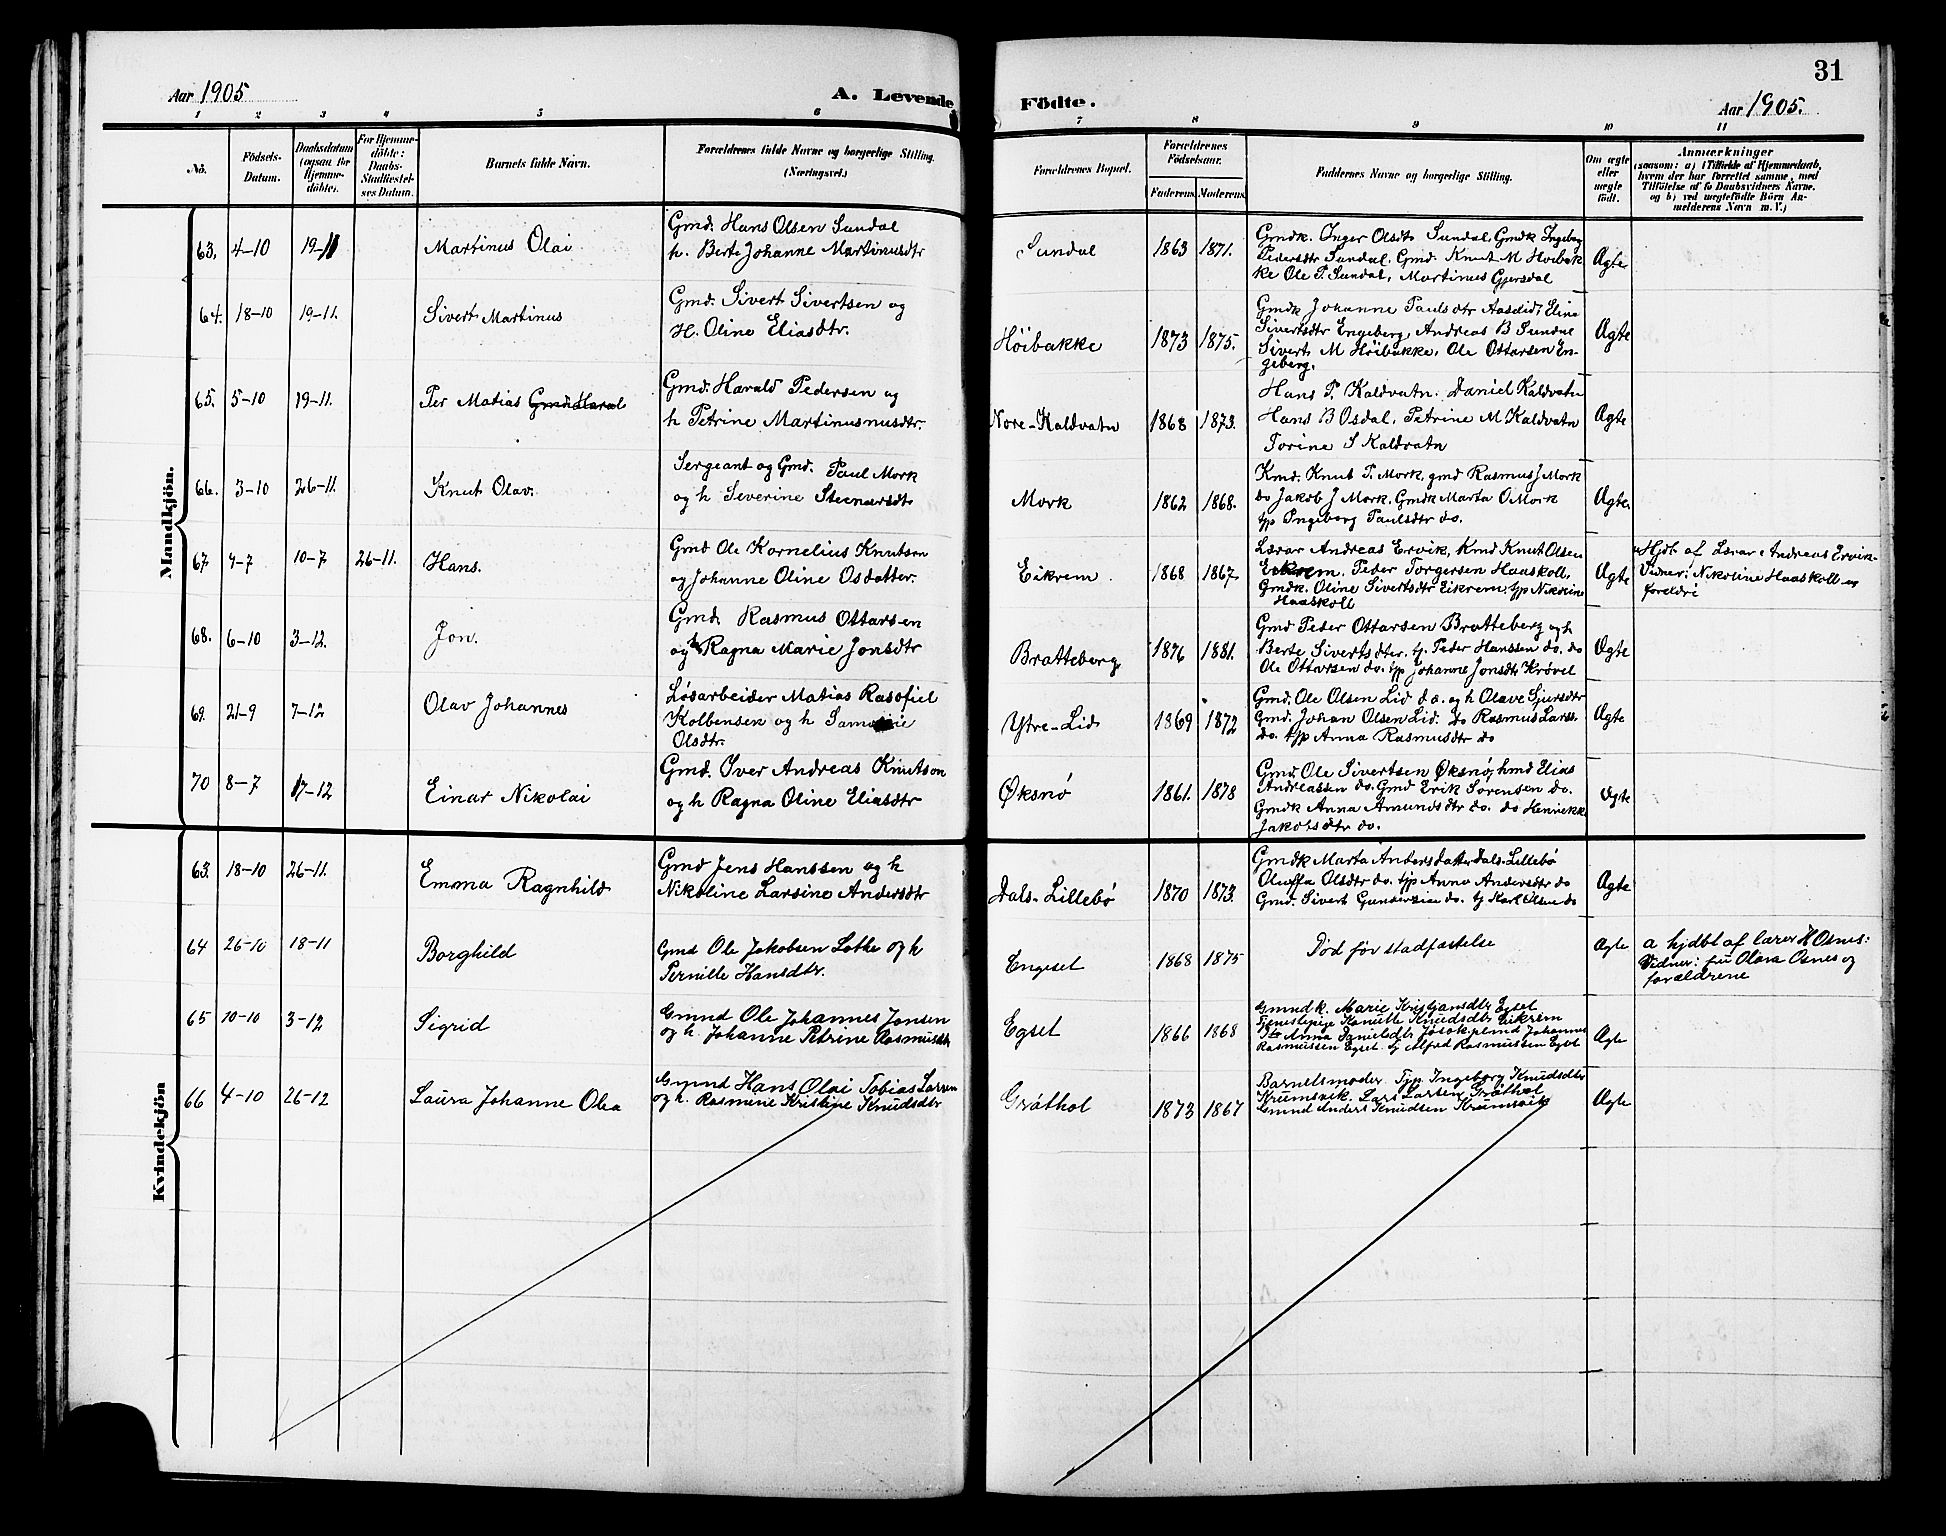 Aar 1905
A. Levende
Födte.
31
Aar 1905.
1 2 3 4 5 6 7 8 9 10 11
No.
Födsels-
Datum.
Daabsdatum
(ogsaa for
Hjemme-
döbte).
For Hjemme-
döbte:
Daabs-
Stadfæstel-
ses Datum.
Barnets fulde Navn.
Forældrenes fulde Navne og borgerlige Stilling.
(Næringsvei.)
Forældrenes Bopæl.
Forældrenes
Födselsaar.
Faderens Moderens
Faddernes Navne og borgerlige Stilling.
Om ægte
eller
uægte
født.
Anmærkninger
(saasom: a) i Tilfælde af Hjemmedaab,
hvem der har forrettet samme, med
Tilføielse af to Daabsvidners Navne.
og b) ved uægtefödte Börn An-
melderens Navn m. V.)
Mandkjön.
63. 4-10 19-11
Martinus Olai
Gmd. Hans Olsen Sundal
h. Berte Johanne Martinusdtr
Sundal
1863 1871.
Gmdk. Inger Olsdtr Sundal, Gmdk Ingebog
Pedersdtr Sundal. Gmd. Knut M Hoibak
ke Ole P. Sundal, Martinus Gjersdal
Ægte
64. 18-10 19-11.
Sivert Martinus
Gmd. Sivert Sivertsen og
H. Oline Eliasdtr.
Höibakke
1873 1875.
Gmdk Johanne Paulsdtr Aasdid, Eline
Sivertsdtr Engeberg, Andreas B Sundal
Sivert M Höibakke, Ole Ottarsen En-
geberg.
Ægte
65. 5-10 19-11.
Per Matias Gmd. Haral
Gmd. Harald Pedersen og
h Petrine Martinusnusdtr.
Nore-Kaldvatn
1868 1873.
Hans P. Kaldvatn. Daniel Kaldvatn
Hans B Osdal, Petrine M Kaldvatn
Torine S Kaldvatn
Ægte
66. 3-10 26-11.
Knut Olav.
Sergeant og Gmd. Paul Mork
og h Severine Steinarsdtr
Mork
1862 1868.
Kmd. Knut P. Mork, gmd Rasmus J Mork
do Jakob J Mork, Gmdk Marta O Mork
tjp Ingeborg Paulsdtr do.
Ægte
67. 4-7 10-7 26-11.
Hans.
Gmd Ole Kornelius Knutson
og Johanne Oline Osdatter.
Eikrem
1868 1867
Lærar Andreas Ervik, Kmd Knut Olsen
Eikrem. Peder Torgersen Haaskoll,
Gmdk. Oline Sivertsdtr Eikrem, tjp Nikoline
Haaskoll
Ægte
Hjdt af Lærar Andreas Ervik-
Vidner: Nikoline Haaskoll og
foreldri
68. 6-10 3-12.
Jon.
Gmd. Rasmus Ottarsen
og h Ragna Marie Jonsdtr
Bratteberg
1876 1881.
Gmd Peder Ottarsen Bratteberg og h
Berte Sivertsdter. tj. Peder Hanssen do. do
Ole Ottarsen do. tjp Johanne Jonsdtr Krøvel
Ægte
69. 21-9 7-12
Olav Johannes
Løsarbeider Matias Rasofiel
Kolbensen og h
Olsdtr.
Ytre-Lid
1869 1872
Gmd. Ole Olsen Lid do. og h Olave Sjursdtr
Gmd. Johan Olsen Lid. do Rasmus Larss.
do. tjp Anna Rasmusdtr do
Ægte
70 8-7 17-12
Einar Nikolai
Gmd. Iver Andreas Knutson
og h Ragna Oline Eliasdtr
Øksnø
1861. 1878
Gmd. Ole Sivertsen Øksnø, kmd Elias
Andreassen do. Gmd Erik Sørensen do.
Gmdk Anna Amundsdtr do. do Henrikke
Jakobsdtr do.
Ægte
Kvindekjön
63. 18-10 26-11.
Emma Ragnhild
Gmd Jens Hanssen og h
Nikoline Larsine Andersdtr
Dals-Lillebø
1870 1873.
Gmdk Marta Andersdatter Dals-Lillebø
Oluffa Olsdtr do. tjp Anna Andersdtr do
Gmd. Sivert Gundersen do. tj Karl Olsen do
Ægte
64 26-10 18-11
Borghild
Gmd Ole Jakobsen Lothe og h
Pernille Hansdtr.
Engeset
1868 1875
Død før stadfæstelse
Ægte
a hjdbt af lærer H Osnes:
Vidner: fru Olava Osnes og
forældrene
65 10-10 3-12
Sigrid
Gmnd Ole Johannes Jonsen
og h. Johanne Petrine Rasmusdtr
Egset
1866 1868
Gmndk. Marie Kristiansdtr Egset
Tjenestepige Kanutte Knudsdtr Eikrem
Do Anna Danielsdtr Jøsok pld Johannes
Rasmussen Egset og Alfred Rasmussen Egset
Ægte
66 4-10 26-12
Laura Johanne Olea
Gmnd Hans Olai Tobias Larsen
og h. Rasmine Kristine Knudsdtr
Gråthol
1873 1867
Barnetsmoder. Tjp Ingeborg Knudsdtr
Krumsvik. Lars Larsen Gråthol
Gmnd Anders Knudsen Krumsvik
Ægte